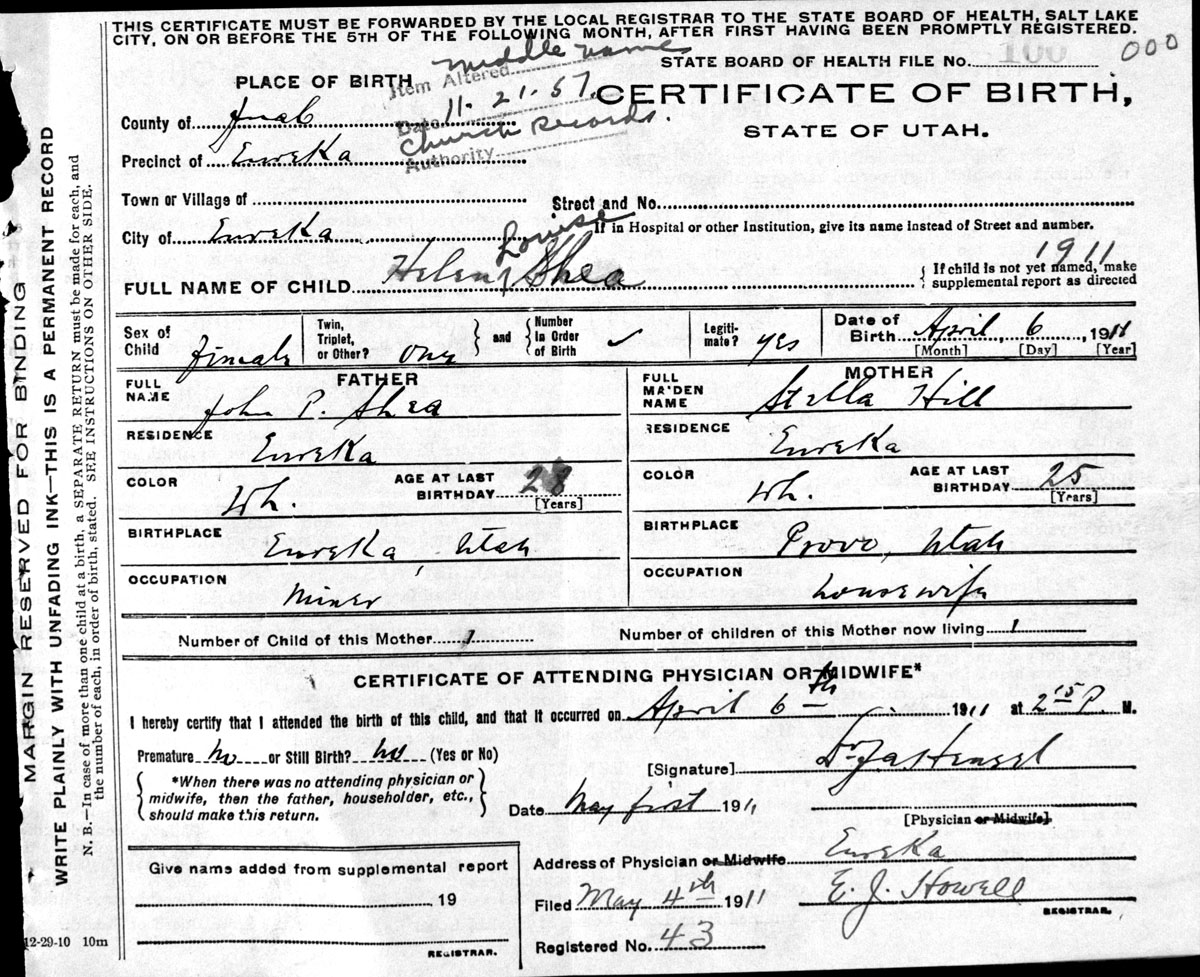 THIS CERTIFICATE MUST BE FORWARDED BY THE LOCAL REGISTRAR TO THE STATE BOARD OF HEALTH, SALT LAKE
CITY, ON OR BEFORE THE 5TH OF THE FOLLOWING MONTH, AFTER FIRST HAVING BEEN PROMPTLY REGISTERED.
STATE BOARD OF HEALTH FILE No. 100 000
PLACE OF BIRTH
Item Altered Middle name
Date 11-21-57
Church Records.
Authority
CERTIFICATE OF BIRTH,
STATE OF UTAH.
County of Juab
Precinct of Eureka
Town or Village of
Street and No.
City of Eureka
If in Hospital or other Institution, give its name instead of Street and number.
Louise
1911
FULL NAME OF CHILD Helen Shea
{ If child is not yet named, make
supplemental report as directed
Sex of Child Female
Twin, Triplet, or Other? One
and Number in Order of Birth ✓
Legiti-mate? yes
Date of Birth April 6, 1911
[Month] [Day] [Year]
FATHER
FULL NAME John P. Shea
RESIDENCE Eureka
COLOR Wh.
AGE AT LAST BIRTHDAY 28
[Years]
BIRTHPLACE Eureka, Utah
OCCUPATION Miner
MOTHER
FULL MAIDEN NAME Stella Hill
RESIDENCE Eureka
COLOR Wh.
AGE AT LAST BIRTHDAY 25
[Years]
BIRTHPLACE Provo, Utah
OCCUPATION housewife
Number of Child of this Mother 1
Number of children of this Mother now living 1
CERTIFICATE OF ATTENDING PHYSICIAN OR MIDWIFE*
I hereby certify that I attended the birth of this child, and that it occurred on April 6th 1911 at 2 15 P. M.
Premature No or Still Birth? No (Yes or No)
{ *When there was no attending physician or
midwife, then the father, householder, etc.,
should make this return. }
[Signature] Dr
Date May first 1911
[Physician or Midwife]
Address of Physician or Midwife Eureka
Filed May 4th 1911
E. J. Howell
REGISTRAR.
Registered No. 43
Give name added from supplemental report
19
REGISTRAR.
12-29-10 10m
MARGIN RESERVED FOR BINDING
WRITE PLAINLY WITH UNFADING INK—THIS IS A PERMANENT RECORD
N. B.—In case of more than one child at a birth, a SEPARATE RETURN must be made for each, and
the number of each, in order of birth, stated. SEE INSTRUCTIONS ON OTHER SIDE.